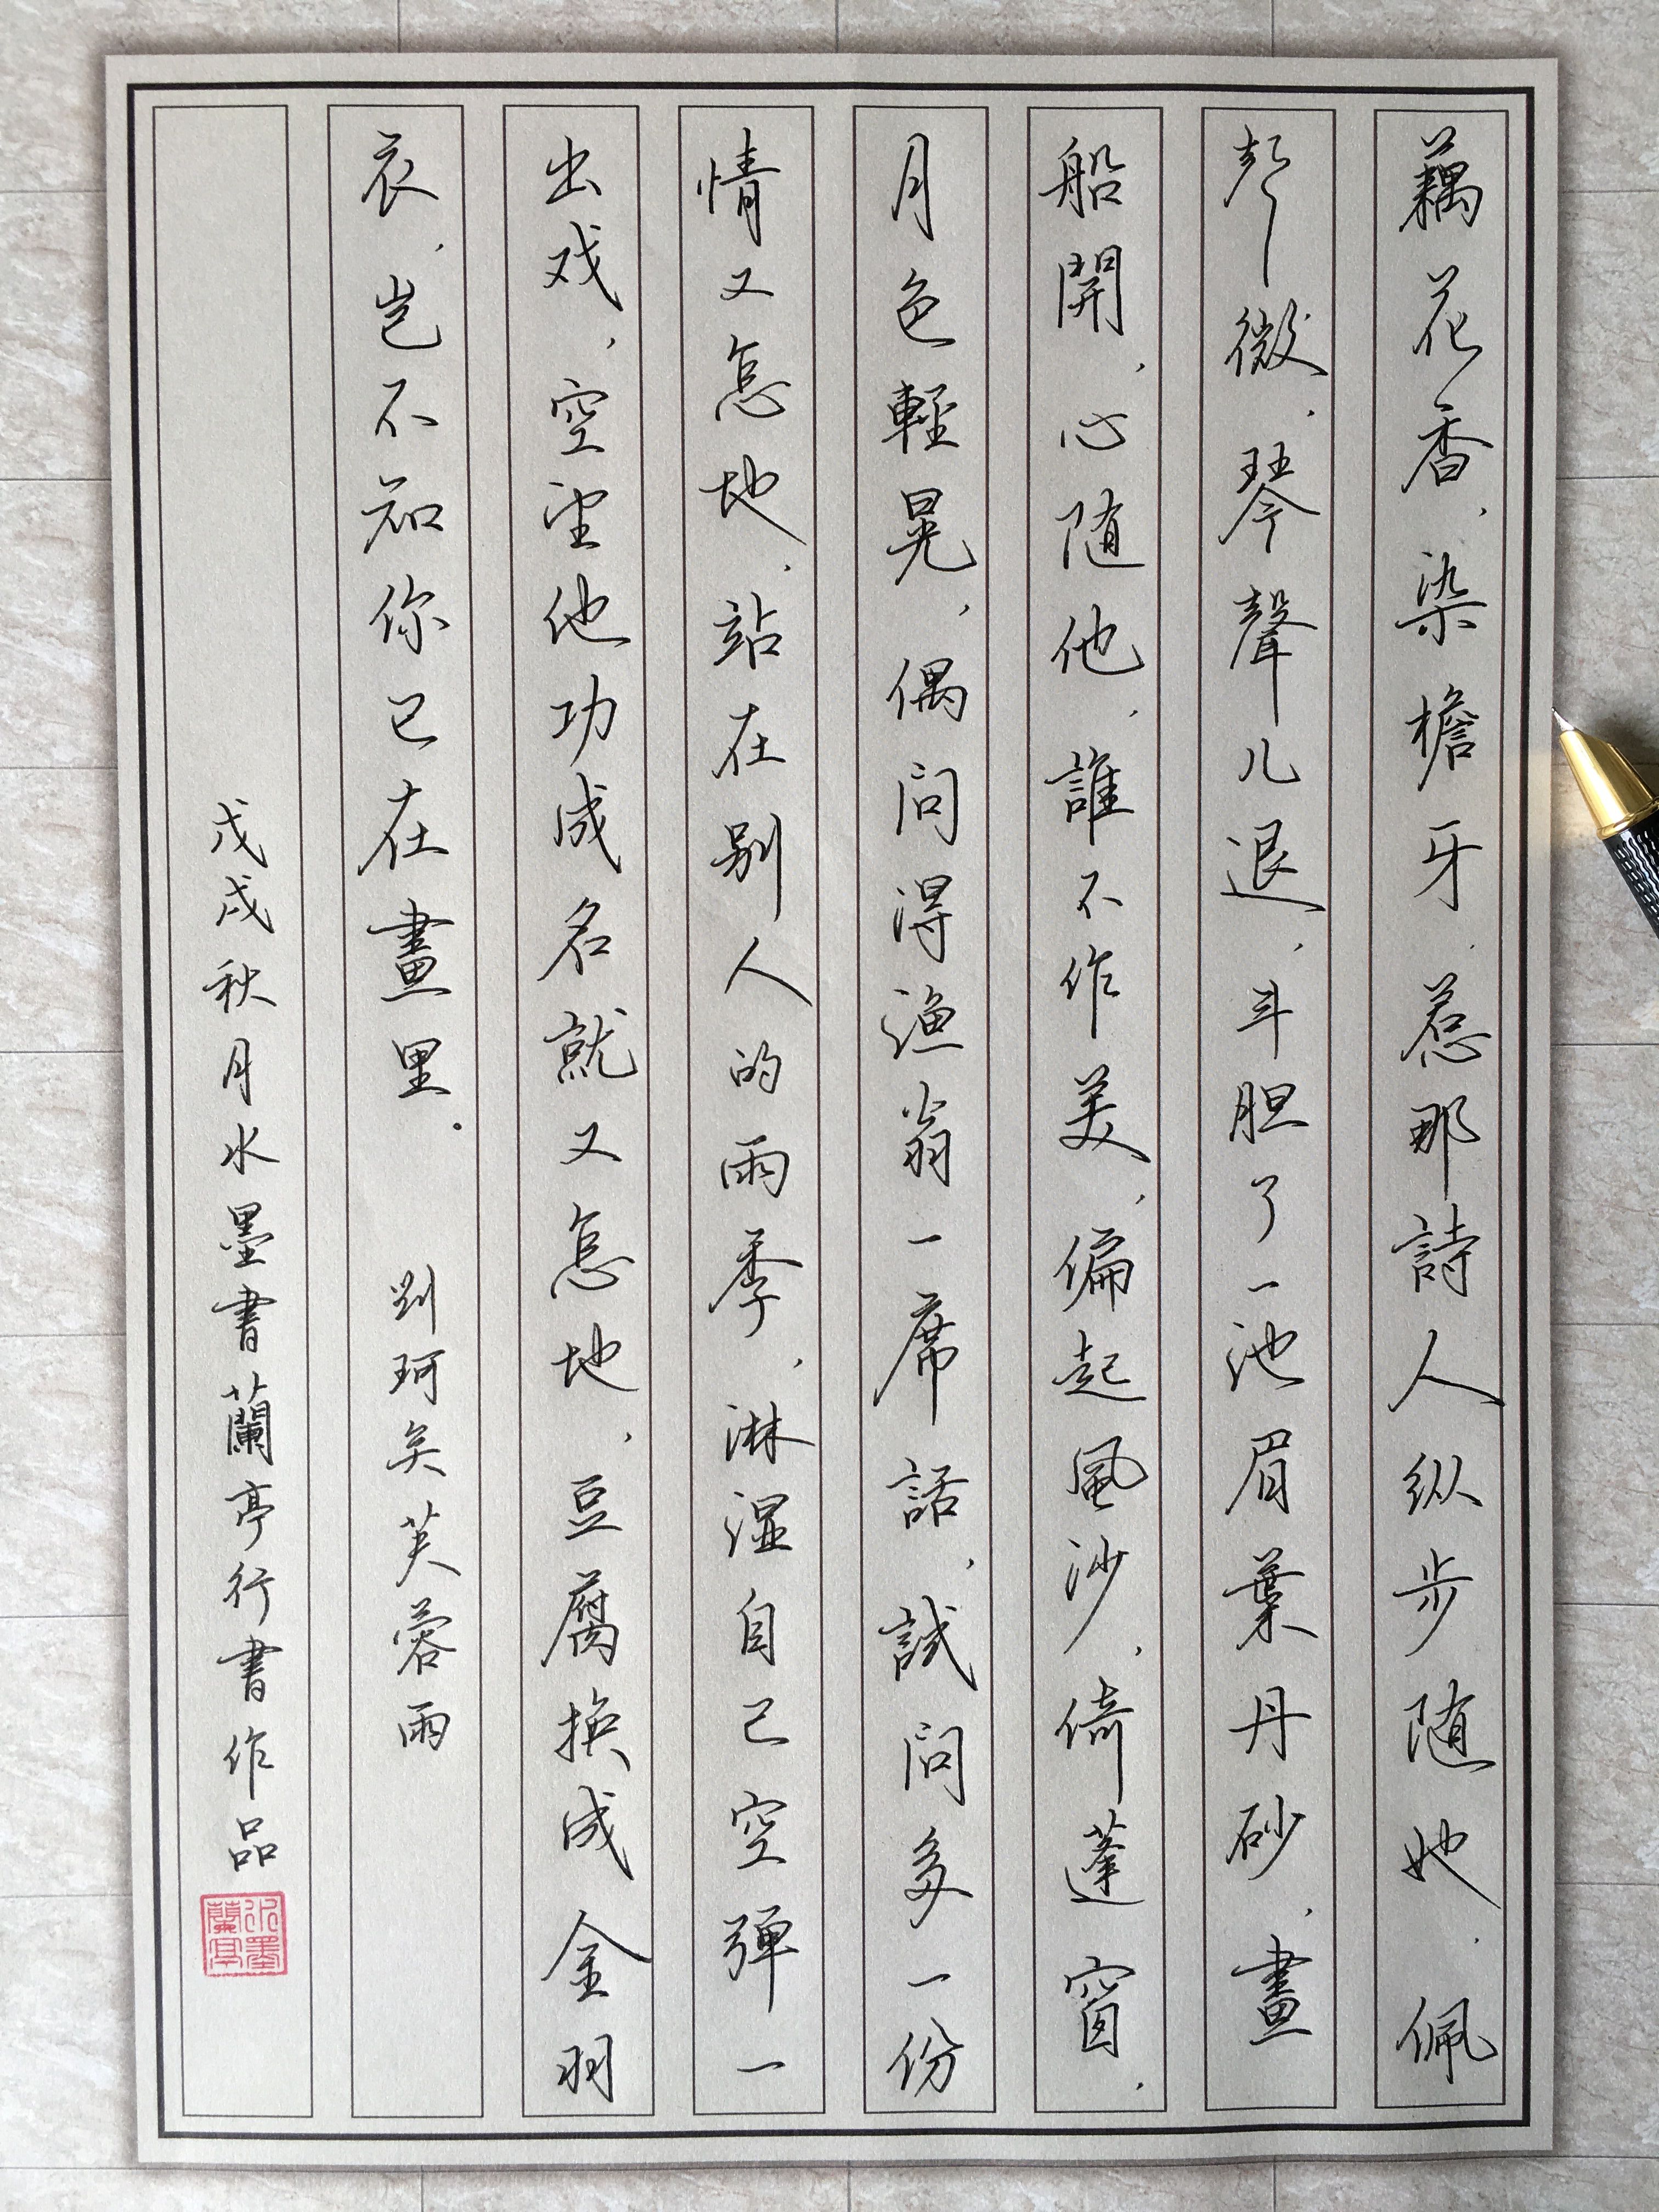 藕花香，染檐牙，惹那詩人纵步随她，佩
声微，琴聲儿退，斗胆了一池眉葉丹砂，畫
船開，心随他，誰不作美，偏起風沙，倚蓬窗，
月色輕晃，偶问得渔翁一席話，試问多一份
情又怎地，站在别人的雨季，淋湿自己空弹一
出戏，空望他功成名就又怎地，豆腐换成金羽
衣，岂不知你已在畫里． 刘珂矣芙蓉雨
戊戌秋月水墨書蘭亭行書作品
水墨蘭亭